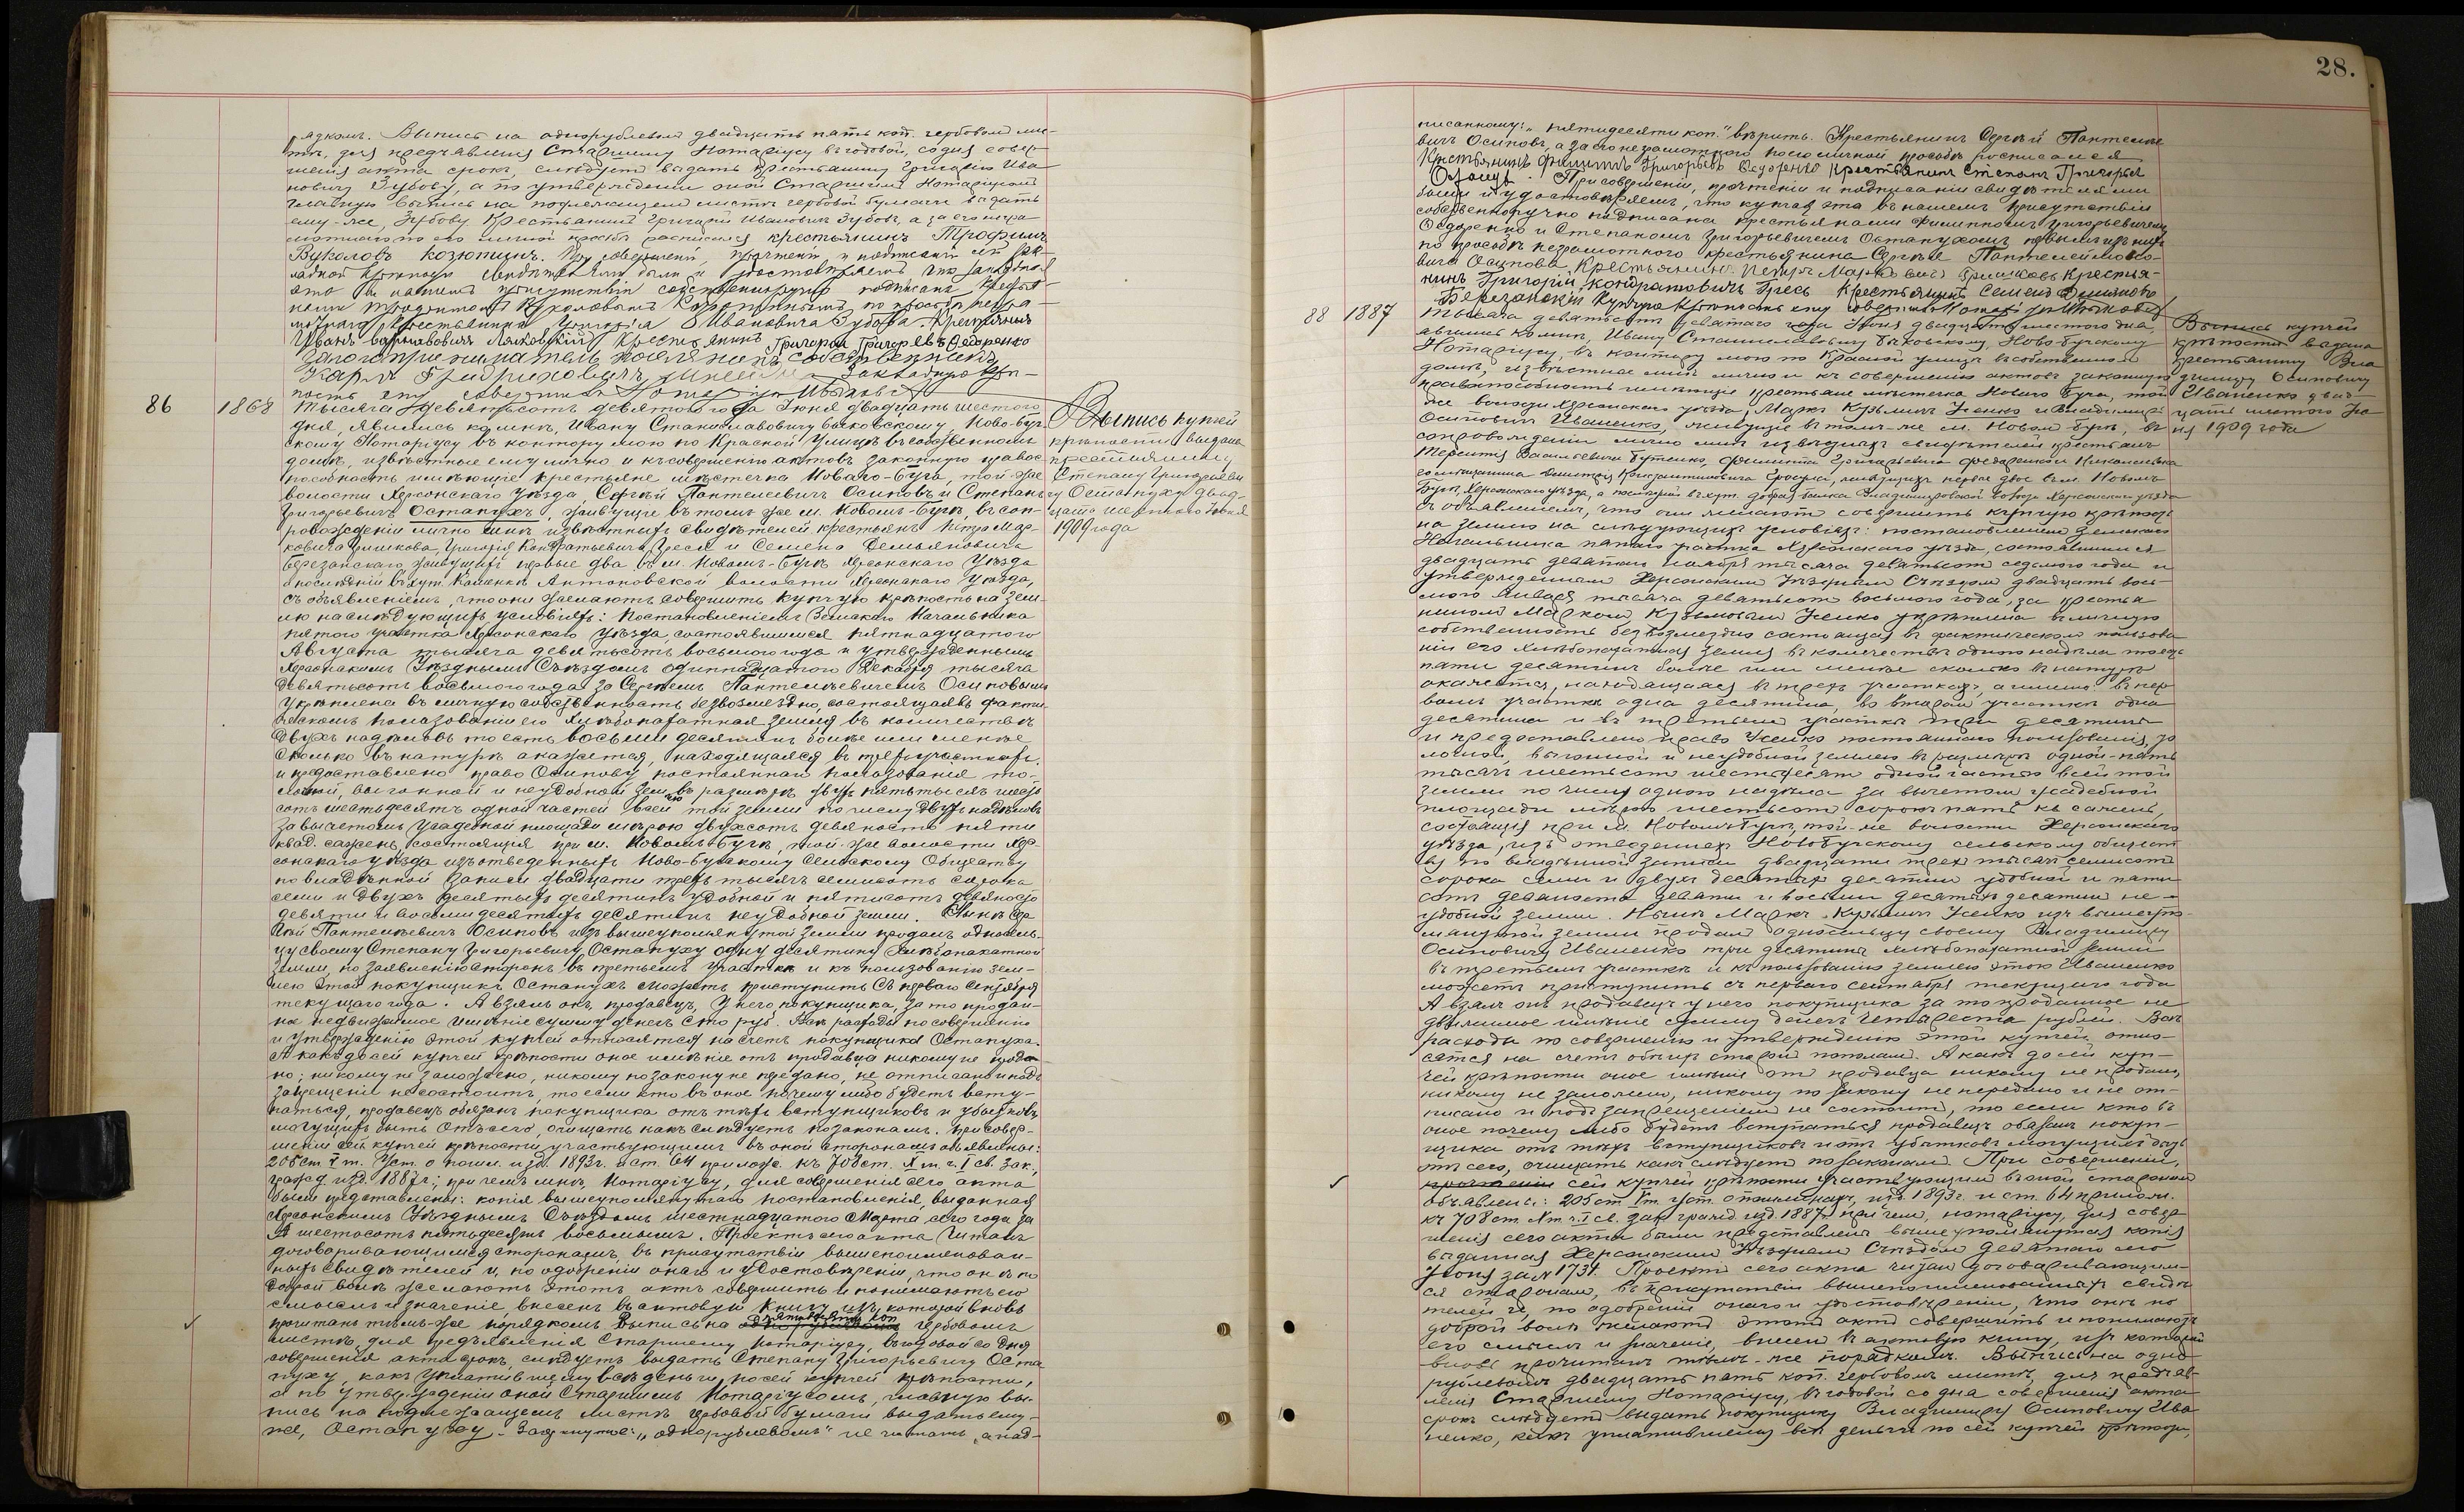 28.
рядкомъ. Выпись на однорублевомъ двадцать пять коп. гербовомъ ли-
стѣ, для предъявленія Старшему Нотаріусу въ годовой, со дня совер-
шенія акта срокъ, слѣдуетъ выдать крестьянину Григорію Ива
новичу Зубову, а по утвержденіи оной Старшимъ Нотаріусомъ
главную выпись на подлежащемъ листѣ гербовой бумаги выдать
ему-же, Зубову. Крестьянинъ Григорій Ивановичъ Зубовъ, а за его негра-
мотнаго по его личной просьбѣ расписался крестьянинъ Трофимъ
Вуколовъ Козютинъ. При совершеніи, прочтеніи и подписаніи сей зак-
ладной крѣпости свидѣтелями были и удостовѣряемъ, что закладная
эта въ нашемъ присутствіи собственноручно подписана крестья-
мотнаго крестьянина Григорія Ивановича Зубова. Крестьянинъ
Иванъ Варнавовичъ Крестьянинъ Григорій Григорьевъ Федоренко
Залогоприниматель поселянинъ собственникъ
Карлъ Фридриховичъ Закладную крѣ-
пость сію совершилъ Нотаріусъ Быховскій
86 1868 Тысяча девятьсотъ девятаго года Іюня двадцать шестого
дня, явились ко мнѣ, Ивану Станиславовичу Быховскому, Ново-Буг-
скому Нотаріусу въ контору мою по Красной улицѣ въ собственномъ
домѣ, извѣстные ему лично и къ совершенію актовъ законную правос-
пособность имѣющіе крестьяне мѣстечка Новаго-Буга, той-же
волости Херсонскаго уѣзда, Сергѣй Пантелеевичъ Осиповъ и Степанъ
Григорьевичъ Остапухъ, живущіе въ томъ же м. Новомъ-Бугѣ, въ соп-
ровожденіи лично мнѣ извѣстныхъ свидѣтелей крестьянъ Петра Мар-
ковича Гришкова, Григорія Кондратьевича Гресь и Семена Демьяновича
Березанскаго, живущихъ первые два въ м. Новомъ-Бугѣ Херсонскаго уѣзда
а послѣдній въ хут. Антоновской волости Херсонскаго уѣзда,
съ объявленіемъ, что они желаютъ совершить купчую крѣпость на зем-
лю на слѣдующихъ условіяхъ: Постановленіемъ Земскаго Начальника
пятого участка Херсонскаго уѣзда, состоявшимся пятнадцатого
Августа тысяча девятьсотъ восьмого года и утвержденнымъ
Херсонскимъ Уѣзднымъ Съѣздомъ одиннадцатого Декабря тысяча
девятьсотъ восьмого года за Сергѣемъ Пантелеевичемъ Осиповымъ
укрѣплена въ личную собственность безвозмездно, состоящая въ факти-
ческомъ пользованіи его хлѣбопахатная земля въ количествѣ
двухъ надѣловъ то есть восьми десятинъ болѣе или менѣе
сколько въ натурѣ окажется, находящаяся въ трехъ участкахъ,
и предоставлено право Осипову постояннаго пользованія то-
лочной, выгонной и неудобной землею въ размѣрѣ двухъ пять тысячъ шесть
сотъ шестьдесятъ одной частей всей той земли по числу двухъ надѣловъ
за вычетомъ усадебной площади мѣрою двухсотъ девяносто пяти
квад. сажень, состоящія при м. Новомъ-Бугѣ, той-же волости Хер-
сонскаго уѣзда изъ отведенныхъ Ново-Бугскому Сельскому Обществу
по владѣнной записи двадцати трехъ тысячъ семисотъ сорока
семи и двухъ десятыхъ десятинъ удобной и пятисотъ девяносто
девяти и восьми десятыхъ десятинъ неудобной земли. Нынѣ Сер-
гѣй Пантелеевичъ Осиповъ изъ вышеупомянутой земли продалъ односель-
цу своему Степану Григорьевичу Остапуху одну десятину хлѣбопахатной
земли, по заявленію сторонъ въ третьемъ участкѣ и къ пользованію зем-
лею этой покупщикъ Остапухъ можетъ приступить съ перваго Сентября
текущаго года. А взялъ онъ, продавецъ, у него покупщика, за то продан-
ное недвижимое имѣніе сумму денегъ сто руб. Всѣ расходы по совершенію
и утвержденію этой купчей относятся на счетъ покупщика Остапуха.
А какъ до сей купчей крѣпости оное имѣніе отъ продавца никому не прода-
но, никому не заложено, никому по закону не предано, не отписано и подъ
запрещеніемъ не состоитъ, то если кто въ оное почему либо будетъ всту-
паться, продавецъ обязанъ покупщика отъ тѣхъ вступщиковъ и убытковъ
могущихъ быть отъ сего, очищать какъ слѣдуетъ по законамъ. При совер-
шеніи сей купчей крѣпости участвующимъ въ оной сторонамъ объявлены:
205 ст. V т. Уст. о пошл. изд. 1893 г. и ст. 64 прилож. къ 708 ст. X т. ч. I св. зак.
гражд. изд. 1887 г., при чемъ мнѣ, Нотаріусу, для совершенія сего акта
были представлены: копія вышеупомянутаго постановленія, выданная
Херсонскимъ Уѣзднымъ Съѣздомъ шестнадцатого Марта сего года за
№ шестьсотъ пятьдесятъ восьмымъ. Проектъ сего акта читанъ
договаривающимся сторонамъ, въ присутствіи вышепоименован-
ныхъ свидѣтелей и, по одобреніи онаго и удостовѣреніи, что онѣ по
доброй волѣ желаютъ этотъ актъ совершить и понимаютъ его
смыслъ и значеніе, внесенъ въ актовую книгу, изъ которой вновь
прочитанъ тѣмъ-же порядкомъ. Выпись на однорублевомъ пятидесяти коп. гербовомъ
листѣ, для предъявленія Старшему Нотаріусу, въ годовой со дня
совершенія акта срокъ, слѣдуетъ выдать Степану Григорьевичу Оста
пуху, какъ уплатившему всѣ деньги по сей купчей крѣпости,
а по утвержденіи оной Старшимъ Нотаріусомъ, главную вы-
пись на подлежащемъ листѣ гербовой бумаги выдать ему-
же, Остапуху. Зачеркнутое: „однорублевомъ" не читать, а над-
Выпись купчей
крѣпости выдана
крестьянину
Степану Григорьеви
чу Остапуху двад-
цать шестого Іюня
1909 года
писанному: „пятидесяти коп." вѣрить. Крестьянинъ Сергѣй Пантелее
вичъ Осиповъ, а за его неграмотнаго по его личной просьбѣ росписался
Крестьянинъ Филиппъ Григорьевъ Федоренко Крестьянинъ Степанъ Григорьев
При совершеніи, прочтеніи и подписаніи свидѣтелями
были и удостовѣряемъ, что купчая эта въ нашемъ присутствіи
собственноручно подписана крестьянами Филиппомъ Григорьевичемъ
Федоренко и Степаномъ Григорьевичемъ Остапухомъ, первымъ изъ нихъ
по просьбѣ неграмотнаго крестьянина Сергѣя Пантелеймоно-
вича Осипова. Крестьянинъ Петръ Марковичъ Гришковъ Крестья-
нинъ Григорій Кондратовичъ Гресь Крестьянинъ Семенъ Демьяновъ
Березанскій Купчую крѣпость сію совершилъ Нотаріусъ Быховскій
88 1887 Тысяча девятьсотъ девятаго года Іюня двадцать шестого дня,
явились ко мнѣ, Ивану Станиславовичу Быховскому, Ново-Бугскому
Нотаріусу, въ контору мою по Красной улицѣ въ собственномъ
домѣ, извѣстные мнѣ лично и къ совершенію актовъ законную
правоспособность имѣющіе крестьяне мѣстечка Новаго Буга, той
же волости Херсонскаго уѣзда, Маркъ Кузьмичъ Усенко и Владиміръ
Осиповичъ Иваненко, живущіе въ томъ-же м. Новомъ Бугѣ, въ
сопровожденіи лично мнѣ извѣстныхъ свидѣтелей крестьянъ
Терентія Васильевича Бутенко, Филиппа Григорьевича Федоренко и
Бугѣ, Херсонскаго уѣзда, а послѣдній въ Владиміровской волости Херсонскаго уѣзда
съ объявленіемъ, что они желаютъ совершить купчую крѣпость
на землю на слѣдующихъ условіяхъ: постановленіемъ Земскаго
Начальника пятаго участка Херсонскаго уѣзда, состоявшимся
двадцать девятаго ноября тысяча девятьсотъ седьмого года и
утвержденнымъ Херсонскимъ Уѣзднымъ Съѣздомъ двадцать вось-
мого Января тысяча девятьсотъ восьмого года, за крестья
ниномъ Маркомъ Кузьмичемъ Усенко укрѣплена въ личную
собственность безвозмездно состоящая въ фактическомъ пользова
ніи его хлѣбопахатная земля въ количествѣ одного надѣла то есть
пяти десятинъ болѣе или менѣе сколько въ натурѣ
окажется, находящаяся въ трехъ участкахъ, а именно: въ пер
вомъ участкѣ одна десятина, во второмъ участкѣ одна
десятина и въ третьемъ участкѣ три десятины
и предоставлено право Усенко постояннаго пользованія то
лочной, выгонной и неудобной землею въ размѣрѣ одной-пять
тысячъ шестьсотъ шестьдесятъ одной части всей той
земли по числу одного надѣла за вычетомъ усадебной
площади мѣрою шестьсотъ сорокъ пять кв. сажень,
состоящія при м. Новомъ Бугѣ, той-же волости Херсонскаго
уѣзда, изъ отведенныхъ Новобугскому сельскому общест
ву по владѣнной записи двадцати трехъ тысячъ семисотъ
сорока семи и двухъ десятыхъ десятинъ удобной и пяти
сотъ девяносто девяти и восьми десятыхъ десятинъ не-
удобной земли. Нынѣ Маркъ Кузьмичъ Усенко изъ вышеупо-
мянутой земли продалъ односельцу своему Владиміру
Осиповичу Иваненко три десятины хлѣбопахатной земли
въ третьемъ участкѣ и къ пользованію землею этою Иваненко
можетъ приступить съ перваго сентября текущаго года
А взялъ онъ продавецъ у него покупщика за то проданное не
движимое имѣніе сумму денегъ четыреста рублей. Всѣ
расходы по совершенію и утвержденію этой купчей отно
сятся на счетъ обѣихъ сторонъ пополамъ. А какъ до сей куп-
чей крѣпости оное имѣніе отъ продавца никому не продано,
никому не заложено, никому по закону не передано и не от-
писано и подъ запрещеніемъ не состоитъ, то если кто въ
оное почему либо будетъ вступаться продавецъ обязанъ покуп-
щика отъ тѣхъ вступщиковъ и отъ убытковъ могущихъ быть
отъ сего, очищать какъ слѣдуетъ по законамъ. При совершеніи,
прочтеніи сей купчей крѣпости участвующимъ въ оной сторонамъ
объявлены: 205 ст. V т. уст. о пошлинахъ, изд. 1893 г. и ст. 64 прилож.
къ 708 ст. X т. ч. I св. зак. гражд. изд. 1887 г. при чемъ, нотаріусу, для совер
шенія сего акта были представлены вышеупомянутая копія
выданная Херсонскимъ Уѣзднымъ Съѣздомъ девятаго сего
Іюня за № 1731. Проектъ сего акта читанъ договаривающим-
ся сторонамъ, въ присутствіи вышепоименованныхъ свидѣ
телей и, по одобреніи онаго и удостовѣреніи, что онѣ по
доброй волѣ желаютъ этотъ актъ совершить и понимаютъ
его смыслъ и значеніе, внесенъ въ актовую книгу, изъ которой
вновь прочитанъ тѣмъ-же порядкомъ. Выпись на одно-
рублевомъ двадцать пять коп. гербовомъ листѣ, для предъяв-
ленія Старшему Нотаріусу, въ годовой со дня совершенія акта
срокъ слѣдуетъ выдать покупщику Владиміру Осиповичу Ива
ненко, какъ уплатившему всѣ деньги по сей купчей крѣпости,
Выпись купчей
крѣпости выдана
крестьянину Вла
диміру Осиповичу
Иваненко двад-
цать шестого Ію
ня 1909 года